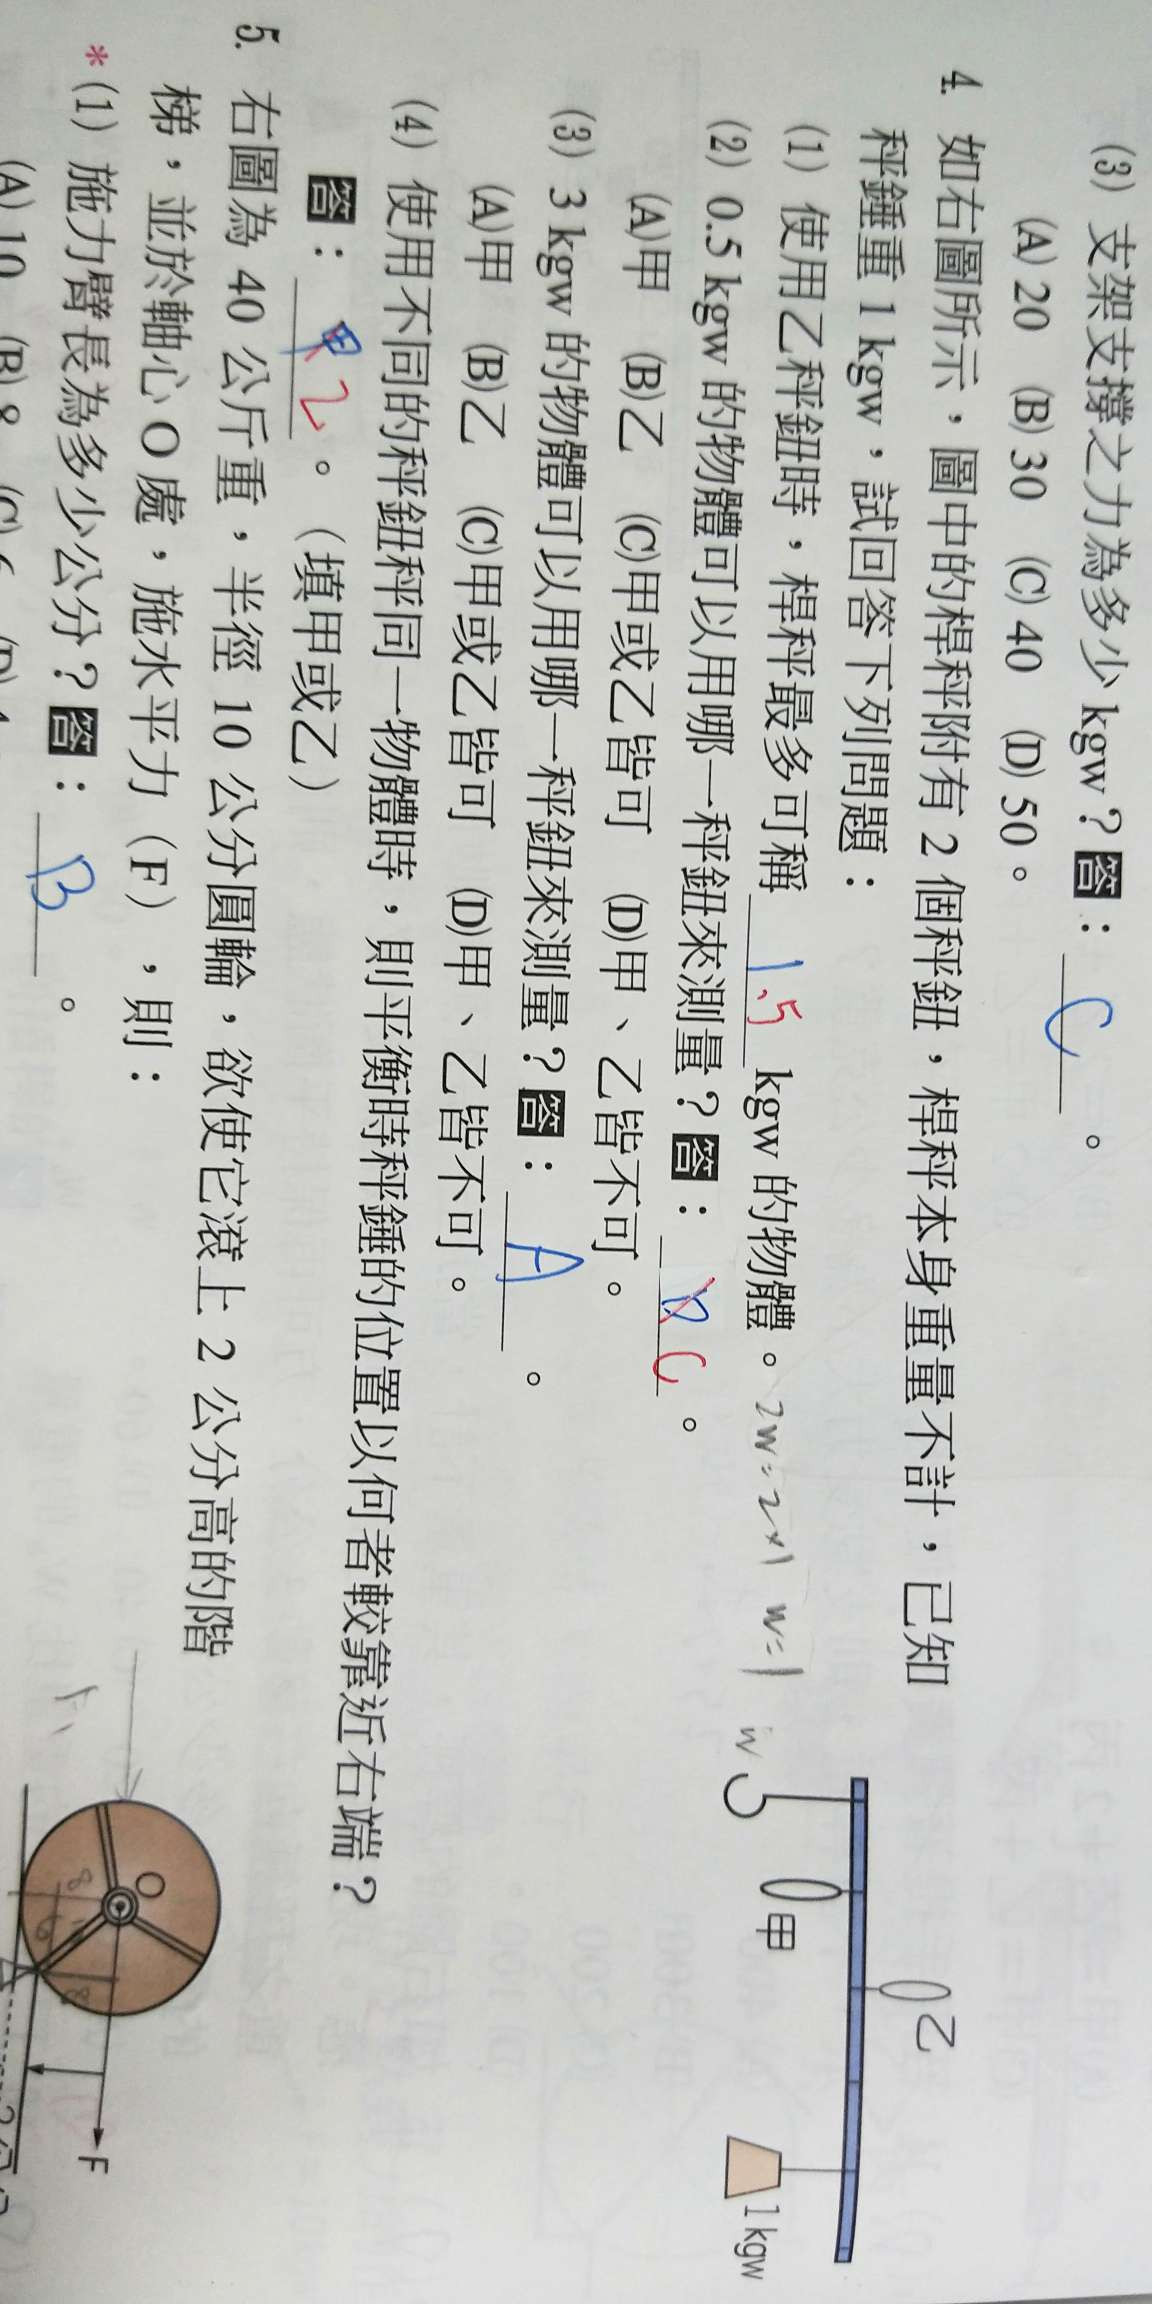 (3) 支架支撐之力為多少 kgw？答：C。
(A) 20 (B) 30 (C) 40 (D) 50。
4. 如右圖所示，圖中的桿秤附有 2 個秤鈕，桿秤本身重量不計，已知
秤錘重 1 kgw，試回答下列問題：
(1) 使用乙秤鈕時，桿秤最多可稱 1.5 kgw 的物體。2W=2×1 W=1
(2) 0.5 kgw 的物體可以用哪一秤鈕來測量？答：C。
(A)甲 (B)乙 (C)甲或乙皆可 (D)甲、乙皆不可。
(3) 3 kgw 的物體可以用哪一秤鈕來測量？答：A。
(A)甲 (B)乙 (C)甲或乙皆可 (D)甲、乙皆不可。
(4) 使用不同的秤鈕秤同一物體時，則平衡時秤錘的位置以何者較靠近右端？
答：甲乙。（填甲或乙）
W
甲
乙
1 kgw
5. 右圖為 40 公斤重，半徑 10 公分圓輪，欲使它滾上 2 公分高的階
梯，並於軸心 O 處，施水平力（F），則：
*(1) 施力臂長為多少公分？答：B。
(A) 10 (B) 8 (C) 6 (D)
O
8
F